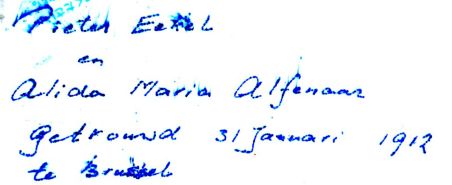 Pieter Eekel
en
Alida Maria Alfenaar
getrouwd 31 Januari 1912
te Brussel